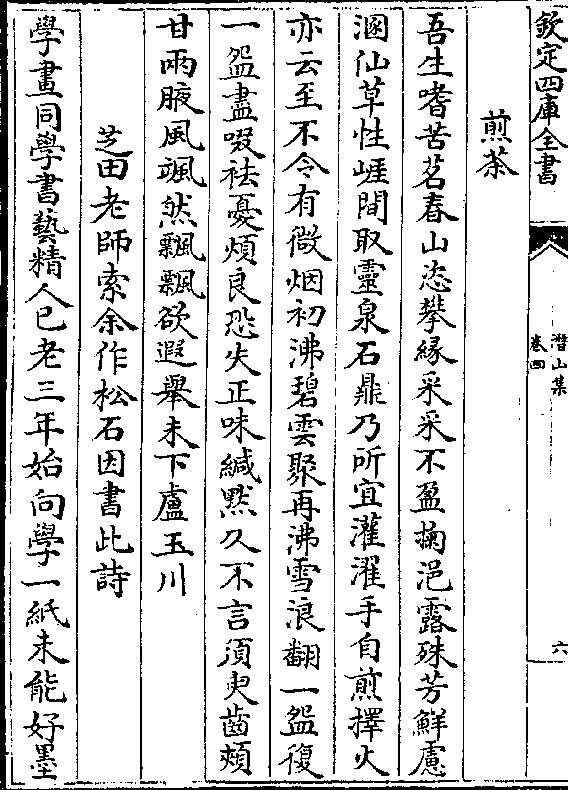 欽定四庫全書
潛山集
卷四
六
煎茶
吾生嗜苦茗春山恣攀緣采采不盈掬浥露殊芳鮮慮
溷仙草性崖間取靈泉石鼎乃所宜灌濯手自煎擇火
亦云至不令有微烟初沸碧雲聚再沸雪浪翻一盌復
一盌盡啜祛憂煩良恐失正味緘默久不言須臾齒頰
甘兩腋風颯然飄飄欲遐舉未下盧玉川
芝田老師索余作松石因書此詩
學畫同學書藝精人已老三年始向學一紙未能好墨